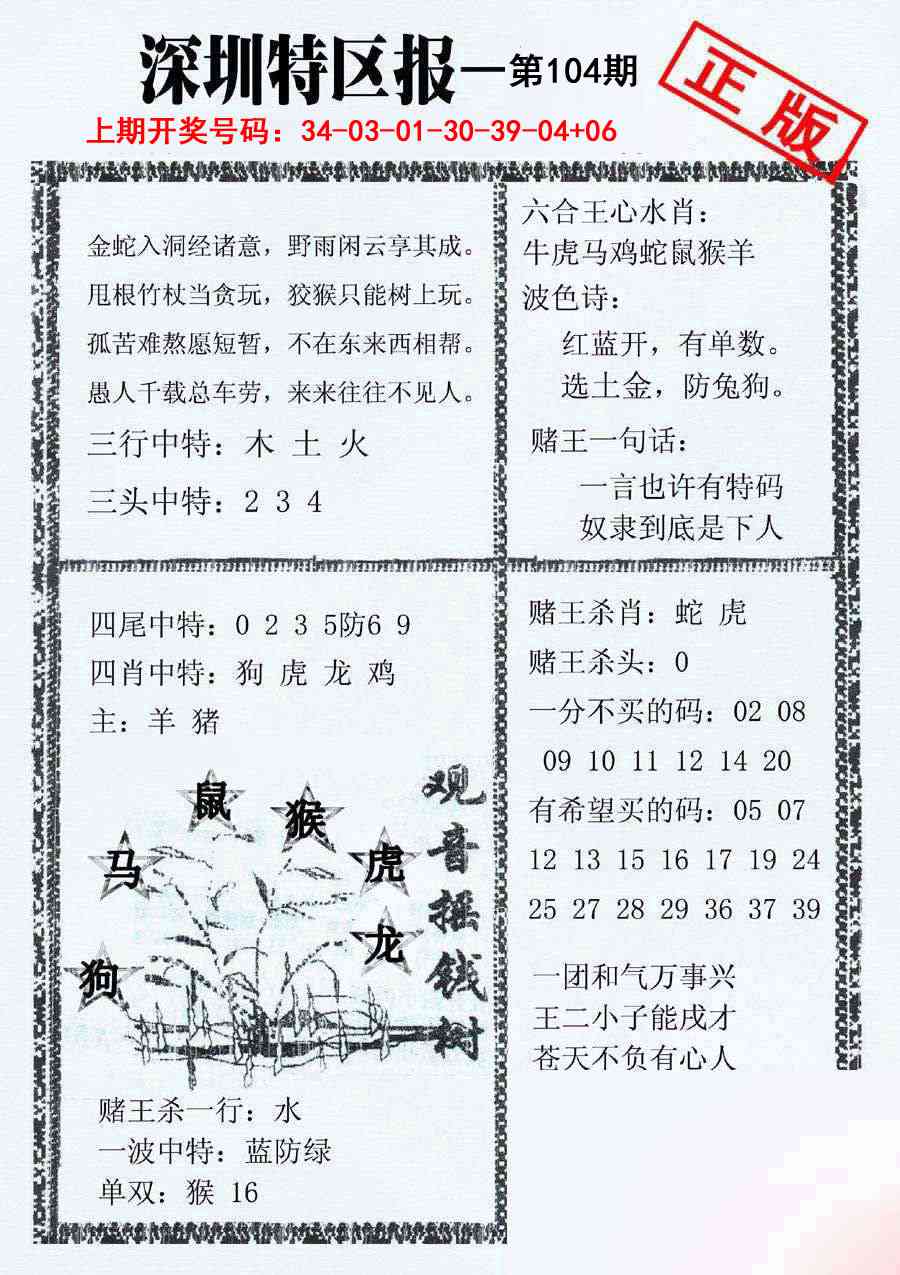 深圳特区报—第104期
正版
上期开奖号码：34-03-01-30-39-04+06
金蛇入洞经诸意，野雨闲云享其成。
甩根竹杖当贪玩，狡猴只能树上玩。
孤苦难熬愿短暂，不在东来西相帮。
愚人千载总车劳，来来往往不见人。
三行中特：木 土 火
三头中特：2 3 4
六合王心水肖：
牛虎马鸡蛇鼠猴羊
波色诗：
红蓝开，有单数。
选土金，防兔狗。
赌王一句话：
一言也许有特码
奴隶到底是下人
四尾中特：0 2 3 5防6 9
四肖中特：狗 虎 龙 鸡
主：羊 猪
鼠
猴
马
虎
龙
狗
观音摇钱树
赌王杀一行：水
一波中特：蓝防绿
单双：猴 16
赌王杀肖：蛇 虎
赌王杀头：0
一分不买的码：02 08
09 10 11 12 14 20
有希望买的码：05 07
12 13 15 16 17 19 24
25 27 28 29 36 37 39
一团和气万事兴
王二小子能戌才
苍天不负有心人